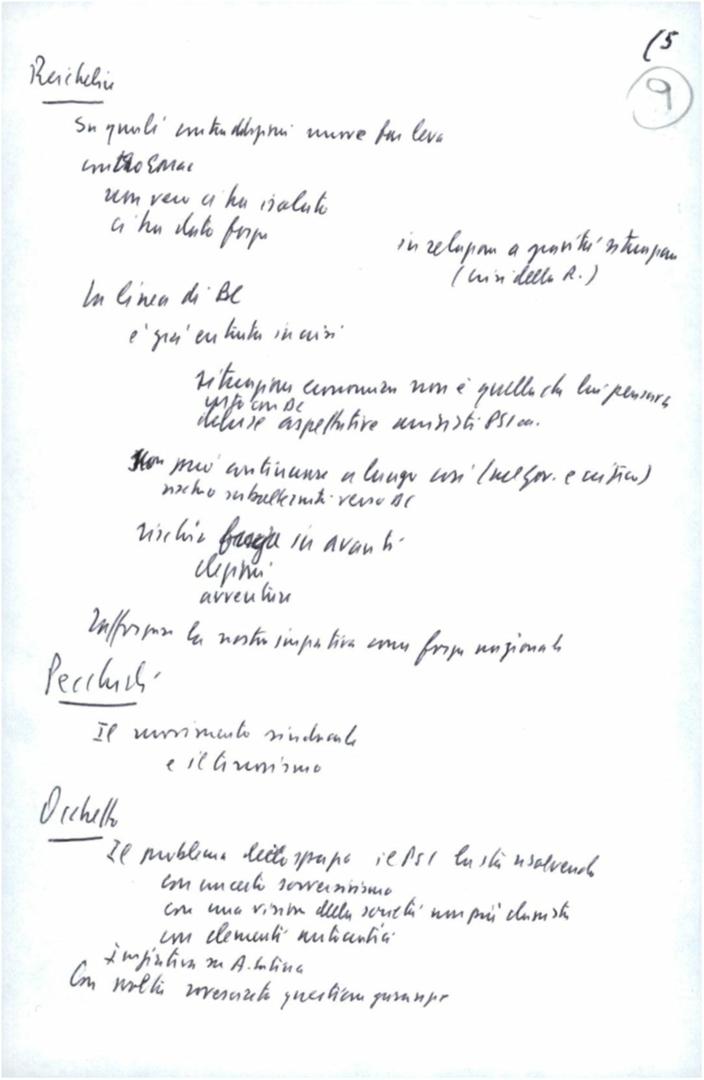 (5
9
Reichlin
Su quali contraddizioni nuove far leva
controsmac
non vero ci ha isolato
ci ha dato forza
in relazione a gravità situazione
(crisi della R.)
La linea di BC
è già entrata in crisi
situazione economica non è quella che lui pensava
visto con DC
deluse aspettative ministri PSI
Non può continuare a lungo così (nel gov. e critica)
rischio subalternità verso DC
rischia fuga in avanti
elezioni
avventure
Rafforzare la nostra iniziativa come forza nazionale
Pecchioli
Il movimento sindacale
e il terrorismo
Occhetto
Il problema dello spazio il PSI lo sta risolvendo
con un certo
con una visione della società non più classista
con elementi autentici
Iniziativa su A. Latina
Con molta questione